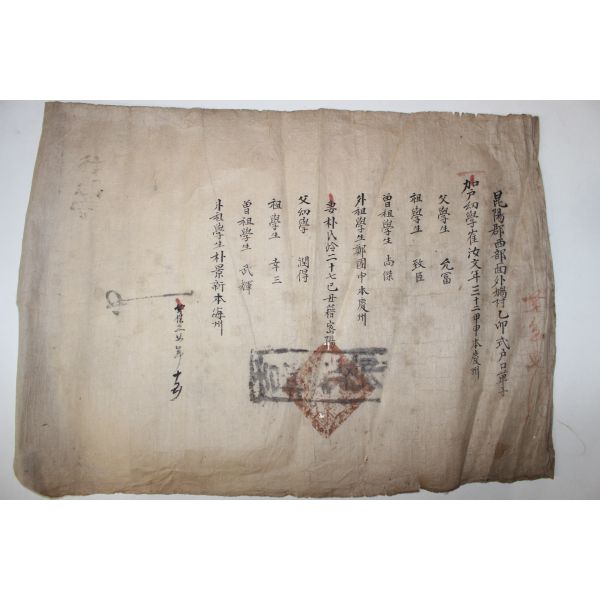 昆陽郡西部面外場村乙卯式戶口單子
加戶幼學崔汝文年三十二甲申本慶州
父學生 允富
祖學生 致臣
曾祖學生 尚傑
外祖學生鄭國中本慶州
妻朴氏齡二十七己丑籍密陽
父幼學 潤得
祖學生 幸三
曾祖學生 武輝
外祖學生朴景新本海州